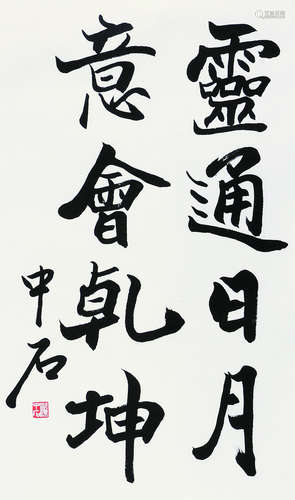 靈通日月
意會乾坤
中石